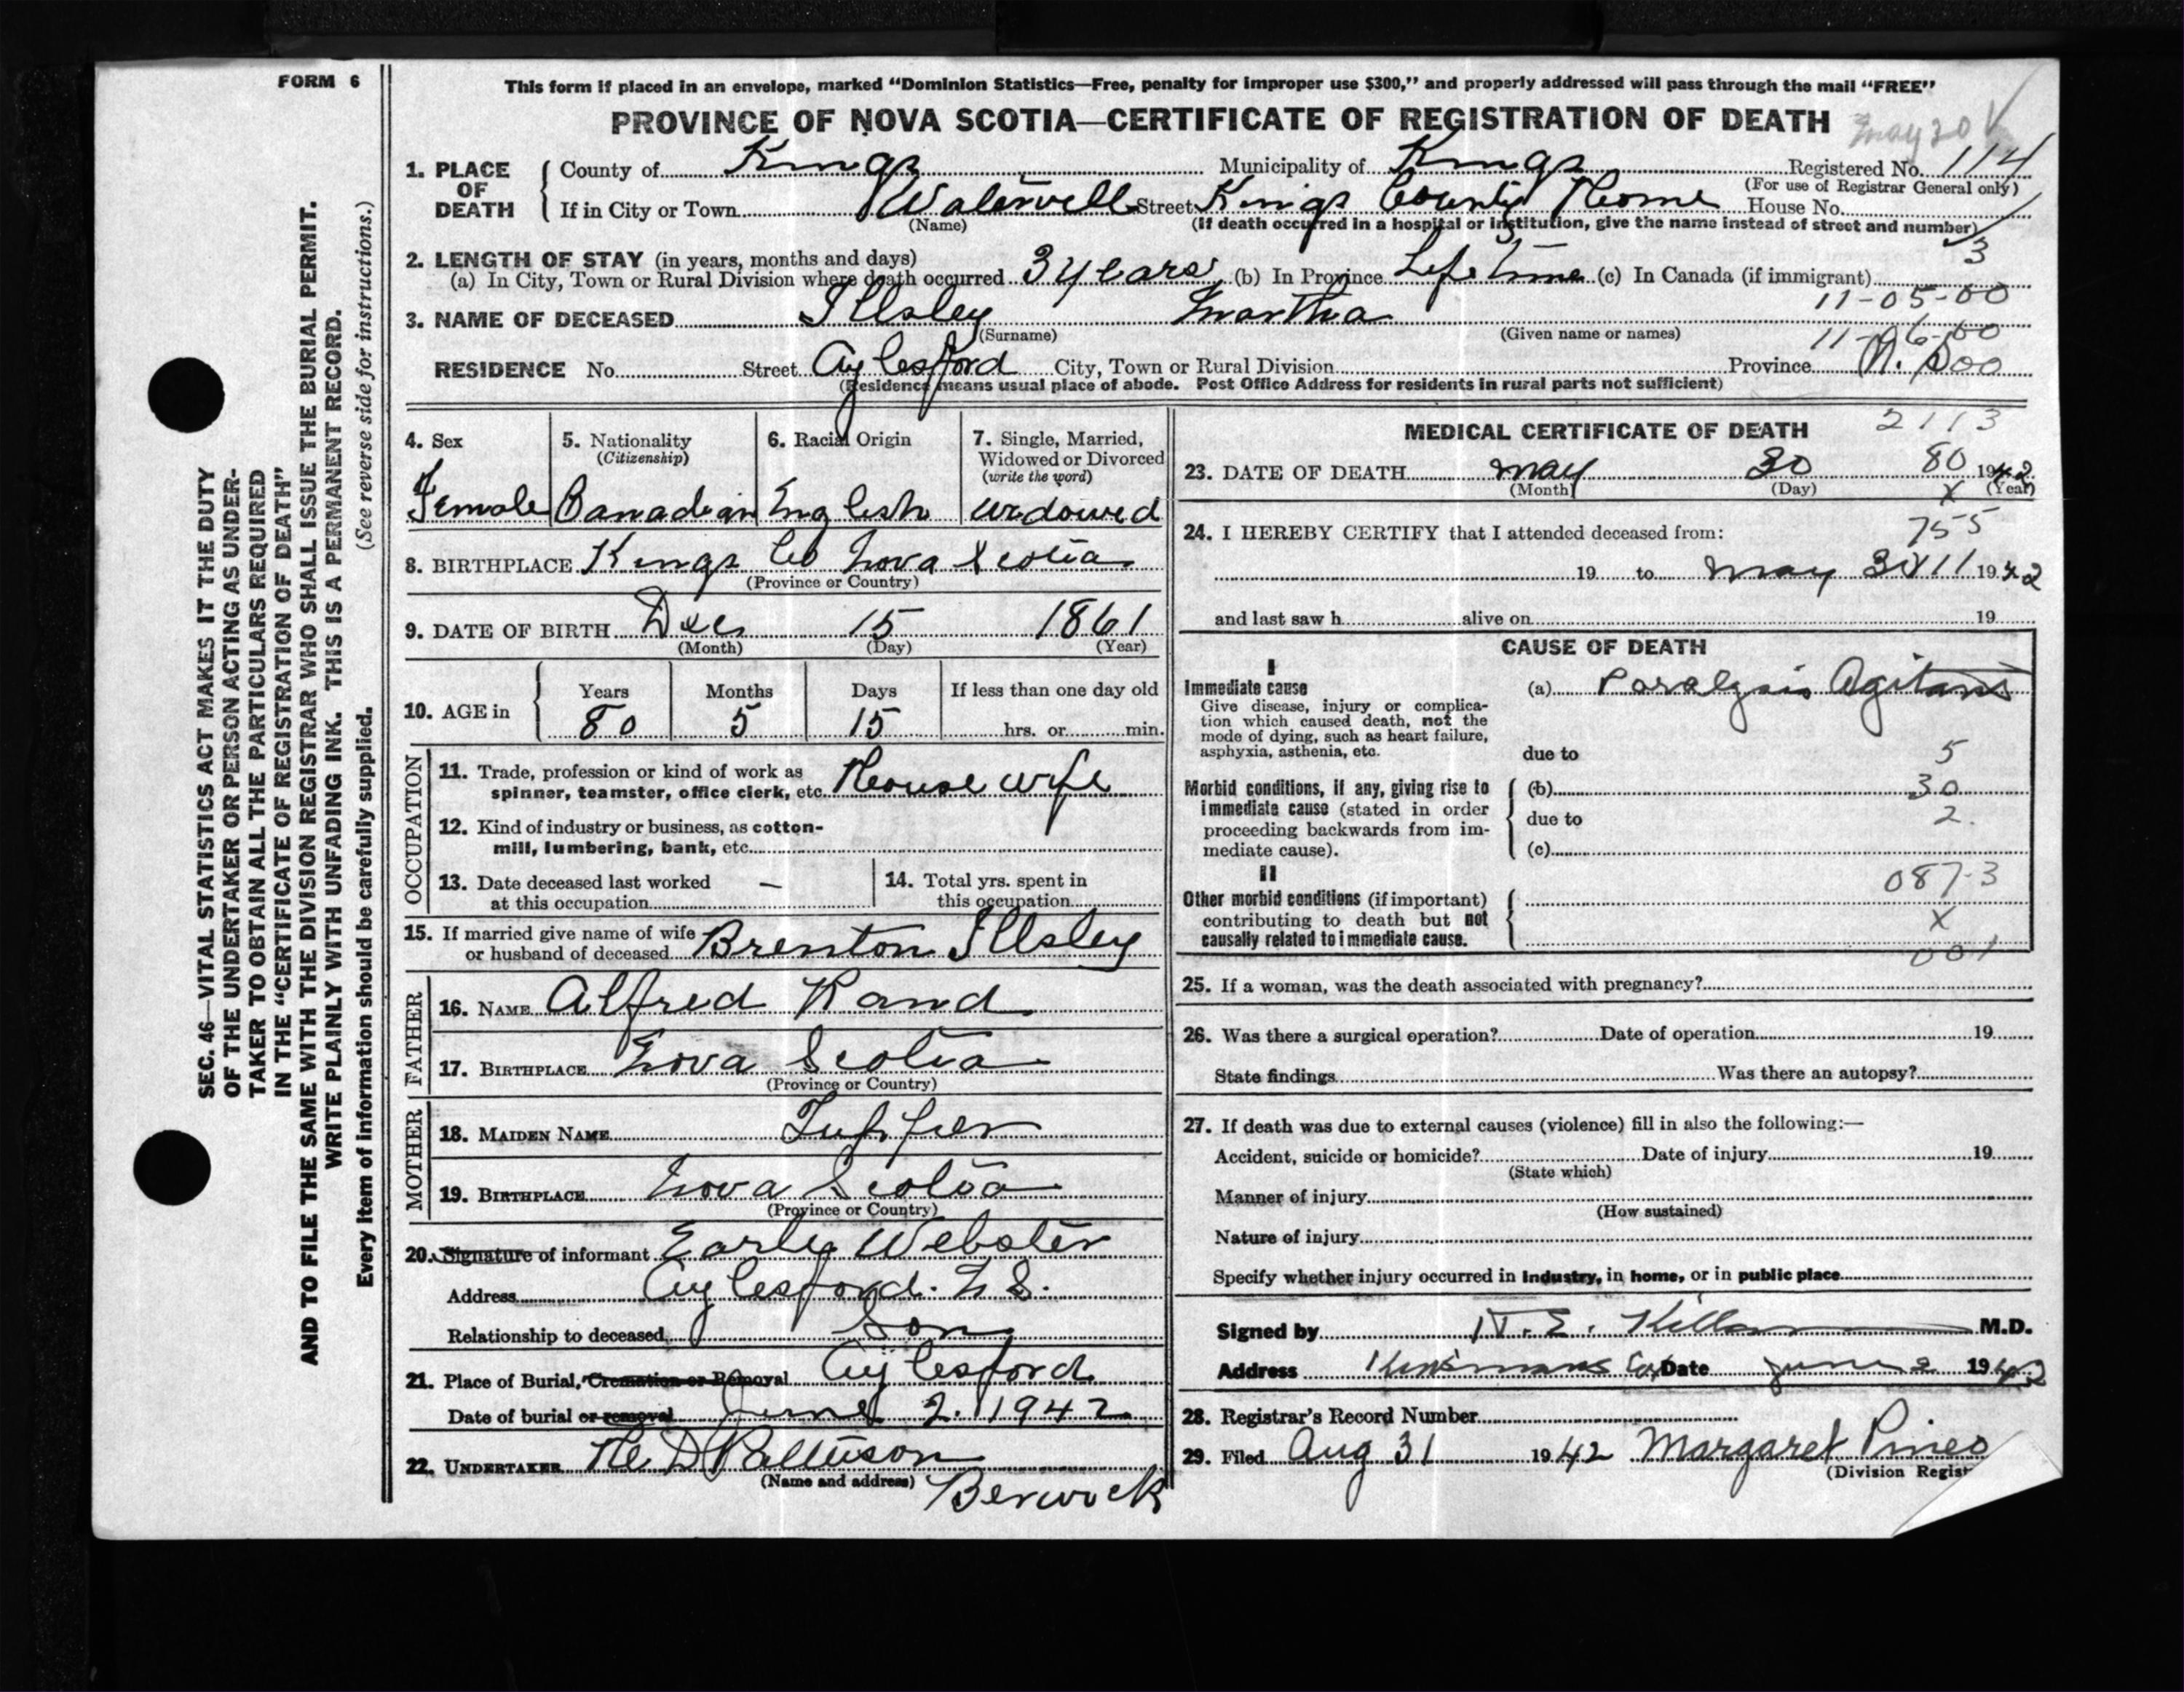 FORM 6
This form if placed in an envelope, marked “Dominion Statistics—Free, penalty for improper use $300,” and properly addressed will pass through the mail “FREE”
PROVINCE OF NOVA SCOTIA—CERTIFICATE OF REGISTRATION OF DEATH
May 30
1. PLACE OF DEATH
County of Kings Municipality of Kings Registered No. 114
(For use of Registrar General only)
If in City or Town Waterville Street Kings County Home House No.
(Name) (If death occurred in a hospital or institution, give the name instead of street and number)
3
2. LENGTH OF STAY (in years, months and days)
(a) In City, Town or Rural Division where death occurred 3 years (b) In Province Life time (c) In Canada (if immigrant)
11-05-00
3. NAME OF DECEASED Illsley Martha
(Surname) (Given name or names)
11-06-00
RESIDENCE No. Street Aylesford City, Town or Rural Division Province N. Sco
(Residence means usual place of abode. Post Office Address for residents in rural parts not sufficient)
4. Sex
Female
5. Nationality
(Citizenship)
Canadian
6. Racial Origin
English
7. Single, Married,
Widowed or Divorced
(write the word)
Widowed
8. BIRTHPLACE Kings Co Nova Scotia
(Province or Country)
9. DATE OF BIRTH Dec 15 1861
(Month) (Day) (Year)
10. AGE in
Years Months Days If less than one day old
80 5 15 hrs. or min.
OCCUPATION
11. Trade, profession or kind of work as
spinner, teamster, office clerk, etc. House wife
12. Kind of industry or business, as cotton-
mill, lumbering, bank, etc.
13. Date deceased last worked —
at this occupation
14. Total yrs. spent in
this occupation
15. If married give name of wife
or husband of deceased Brenton Illsley
FATHER
16. NAME Alfred Rand
17. BIRTHPLACE Nova Scotia
(Province or Country)
MOTHER
18. MAIDEN NAME
19. BIRTHPLACE Nova Scotia
(Province or Country)
20. Signature of informant Earle Webster
Address Aylesford. N S.
Relationship to deceased Son
21. Place of Burial, Cremation or Removal Aylesford
Date of burial or removal June 2. 1942
22. UNDERTAKER D Pattison
(Name and address) Berwick
MEDICAL CERTIFICATE OF DEATH
2113
23. DATE OF DEATH May 30 80 1942
(Month) (Day) X (Year)
24. I HEREBY CERTIFY that I attended deceased from:
755
19 to May 30 11 1942
and last saw h alive on 19
CAUSE OF DEATH
I
Immediate cause
Give disease, injury or complica-
tion which caused death, not the
mode of dying, such as heart failure,
asphyxia, asthenia, etc.
(a) Paralysis Agitans
due to 5
Morbid conditions, if any, giving rise to
immediate cause (stated in order
proceeding backwards from im-
mediate cause).
(b) 30
due to 2.
(c)
087-3
II
Other morbid conditions (if important)
contributing to death but not
causally related to immediate cause.
X
001
25. If a woman, was the death associated with pregnancy?
26. Was there a surgical operation? Date of operation 19
State findings Was there an autopsy?
27. If death was due to external causes (violence) fill in also the following:—
Accident, suicide or homicide? Date of injury 19
(State which)
Manner of injury
(How sustained)
Nature of injury
Specify whether injury occurred in industry, in home, or in public place
Signed by E. Killam M.D.
Address Date June 2 1942
28. Registrar's Record Number
29. Filed Aug 31 1942 Margaret Pineo
(Division Regist
SEC. 46—VITAL STATISTICS ACT MAKES IT THE DUTY
OF THE UNDERTAKER OR PERSON ACTING AS UNDER-
TAKER TO OBTAIN ALL THE PARTICULARS REQUIRED
IN THE “CERTIFICATE OF REGISTRATION OF DEATH”
AND TO FILE THE SAME WITH THE DIVISION REGISTRAR WHO SHALL ISSUE THE BURIAL PERMIT.
WRITE PLAINLY WITH UNFADING INK. THIS IS A PERMANENT RECORD.
Every item of information should be carefully supplied. (See reverse side for instructions.)